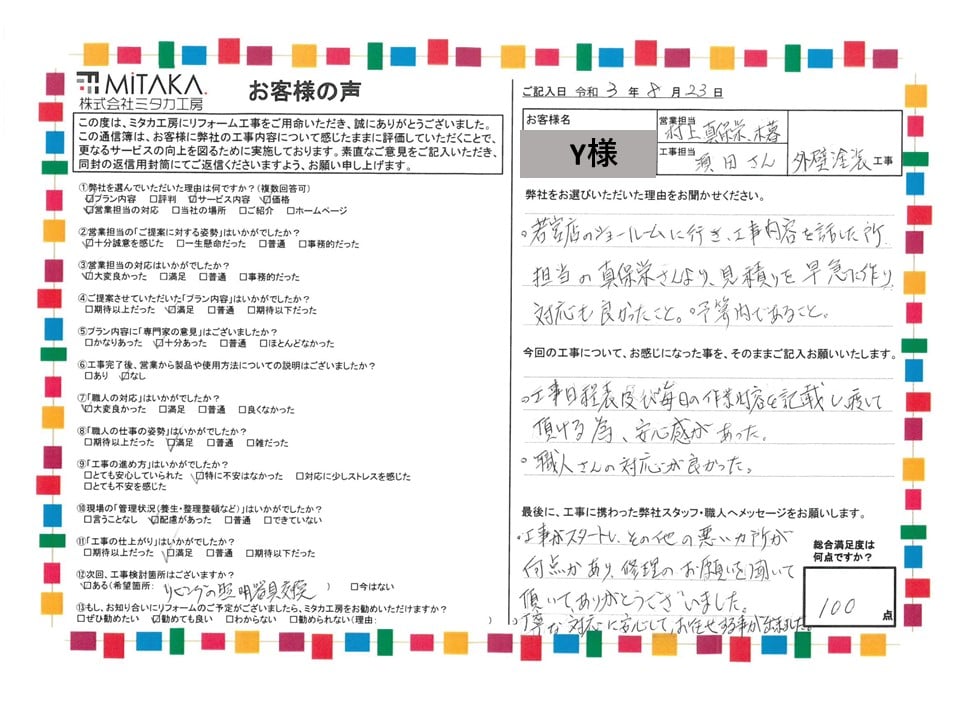 MiTAKA.
株式会社ミタカ工房
お客様の声
この度は、ミタカ工房にリフォーム工事をご用命いただき、誠にありがとうございました。
この通信簿は、お客様に弊社の工事内容について感じたままに評価していただくことで、
更なるサービスの向上を図るために実施しております。素直なご意見をご記入いただき、
同封の返信用封筒にてご返信くださいますよう、お願い申し上げます。
①弊社を選んでいただいた理由は何ですか?(複数回答可)
☑プラン内容 □評判 ☑サービス内容 ☑価格
☑営業担当の対応 □当社の場所 □ご紹介 □ホームページ
②営業担当の「ご提案に対する姿勢」はいかがでしたか?
☑十分誠意を感じた □一生懸命だった □普通 □事務的だった
③営業担当の対応はいかがでしたか?
☑大変良かった □満足 □普通 □事務的だった
④ご提案させていただいた「プラン内容」はいかがでしたか?
□期待以上だった ☑満足 □普通 □期待以下だった
⑤プラン内容に「専門家の意見」はございましたか?
□かなりあった ☑十分あった □普通 □ほとんどなかった
⑥工事完了後、営業から製品や使用方法についての説明はございましたか?
□あり ☑なし
⑦「職人の対応」はいかがでしたか?
☑大変良かった □満足 □普通 □良くなかった
⑧「職人の仕事の姿勢」はいかがでしたか?
□期待以上だった ☑満足 □普通 □雑だった
⑨「工事の進め方」はいかがでしたか?
□とても安心していられた ☑特に不安はなかった □対応に少しストレスを感じた
□とても不安を感じた
⑩現場の「管理状況(養生・整理整頓など)」はいかがでしたか?
□言うことなし ☑配慮があった □普通 □できていない
⑪「工事の仕上がり」はいかがでしたか?
□期待以上だった ☑満足 □普通 □期待以下だった
⑫次回、工事検討箇所はございますか?
☑ある(希望箇所: リビングの照明器具交換 ) □今はない
⑬もし、お知り合いにリフォームのご予定がございましたら、ミタカ工房をお勧めいただけますか?
□ぜひ勧めたい ☑勧めても良い □わからない □勧められない(理由: )
ご記入日 令和 3 年 8 月 23 日
お客様名
Y様
営業担当
村上 真保栄、木暮
工事担当
須田さん
外壁塗装工事
弊社をお選びいただいた理由をお聞かせください。
。若宮店のショールームに行き、工事内容を話した所、
担当の真保栄さんより、見積りを早急に作り
対応も良かったこと。。予算内であること。
今回の工事について、お感じになった事を、そのままご記入お願いいたします。
。工事日程表及び毎日の作業内容を記載し渡して
頂ける為、安心感があった。
。職人さんの対応が良かった。
最後に、工事に携わった弊社スタッフ・職人へメッセージをお願いします。
。工事がスタートし、その他の悪いカ所が
何点かあり、修理のお願いを聞いて
頂いてありがとうございました。
。丁寧な対応に安心して、お任せする事が出来ました。
総合満足度は
何点ですか?
100 点